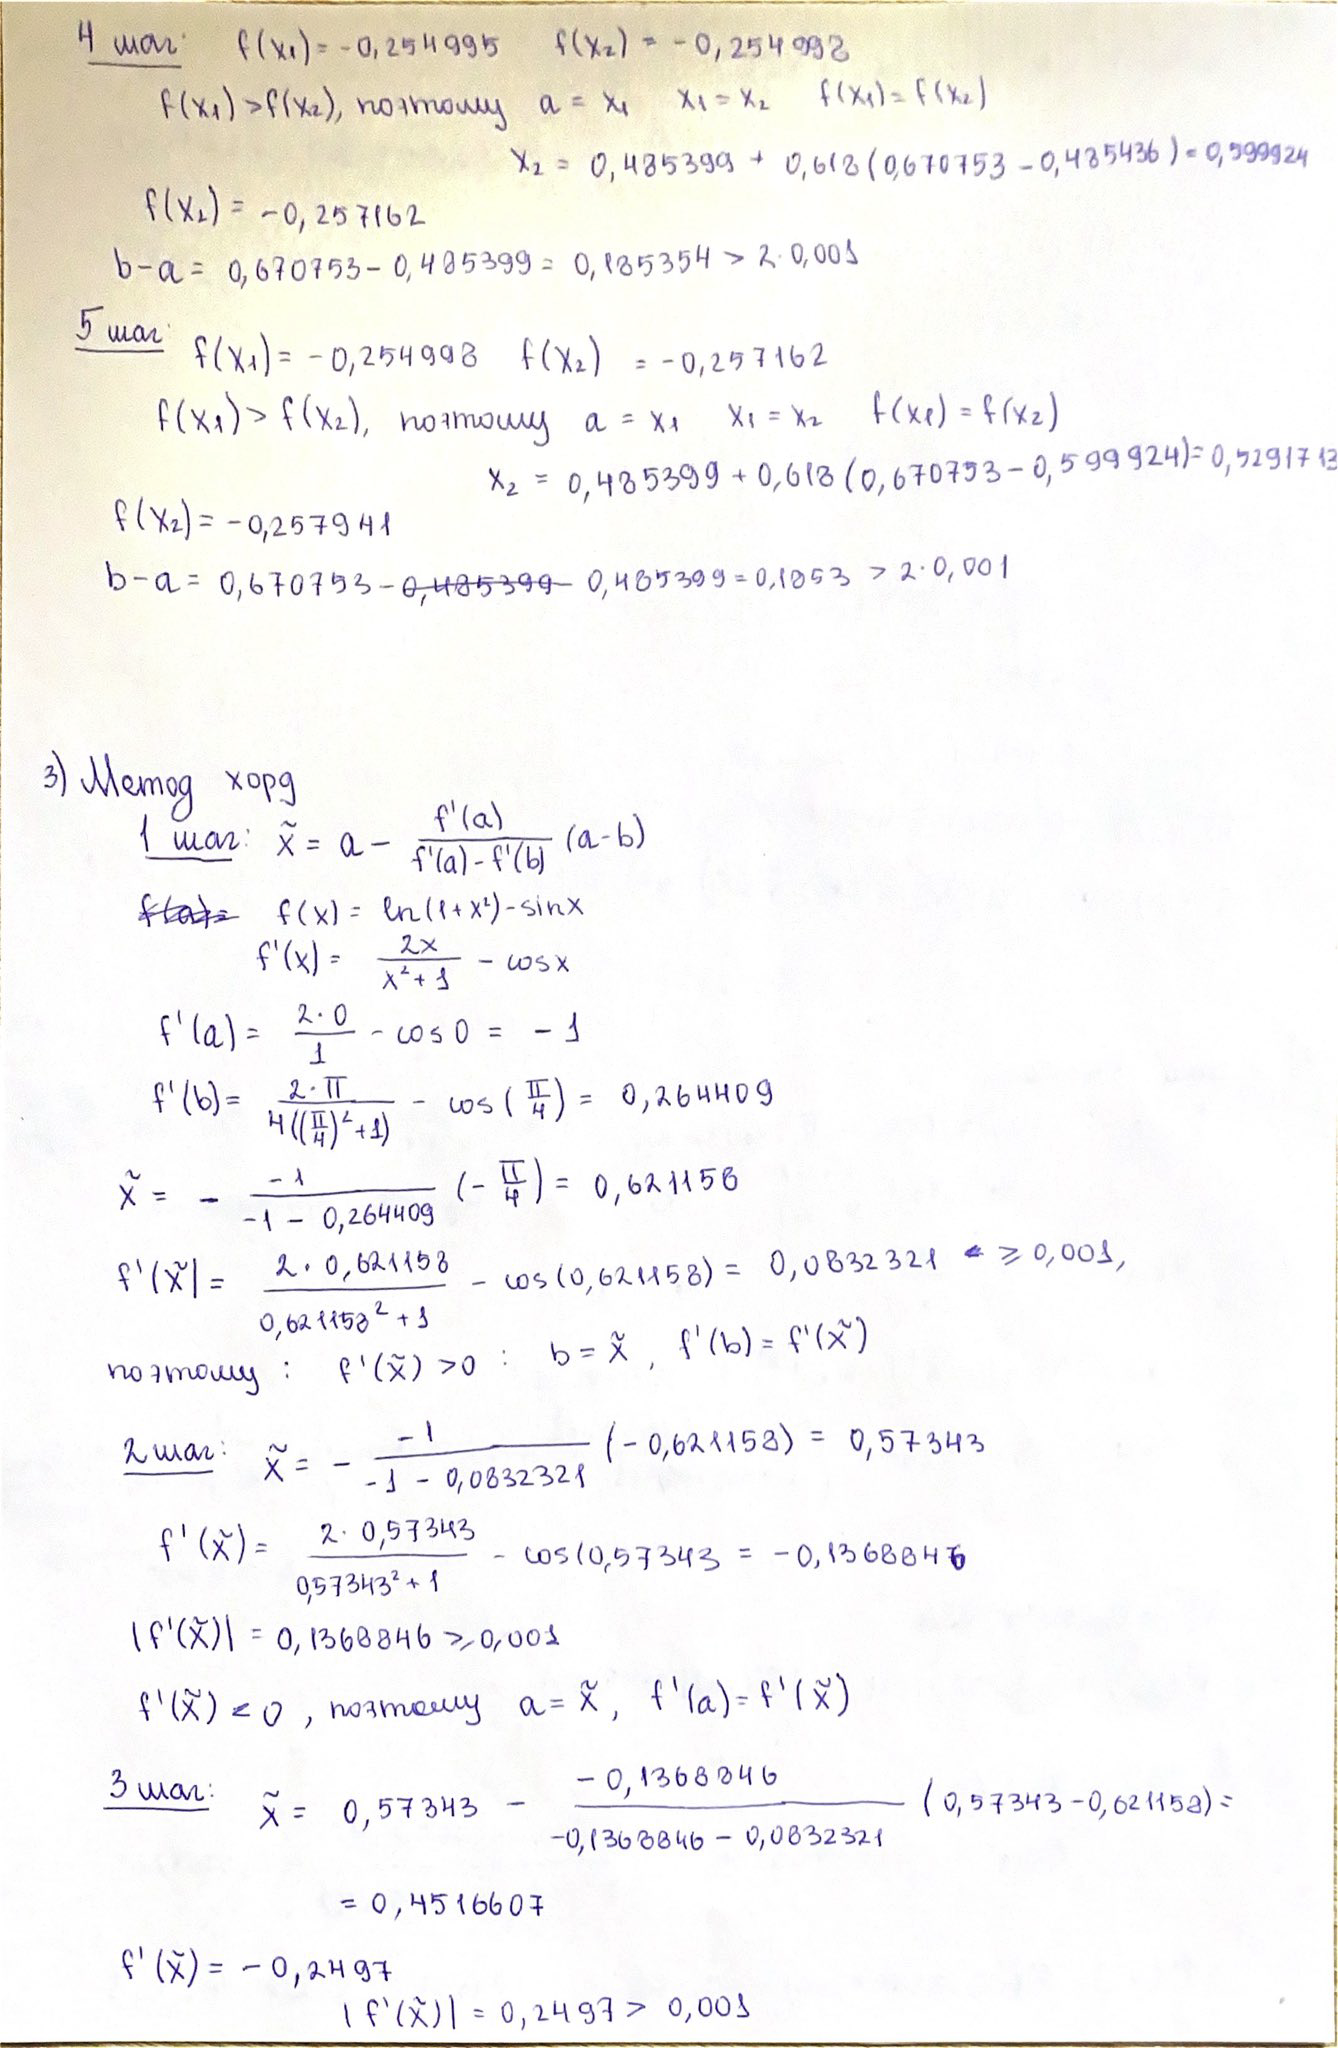 4 шаг: f(x₁) = -0,254995 f(x₂) = -0,254998
f(x₁) > f(x₂), поэтому a = x₁ x₁ = x₂ f(x₁) = f(x₂)
x₂ = 0,485399 + 0,618 (0,670753 - 0,485436) = 0,599924
f(x₂) = -0,257162
b-a = 0,670753 - 0,485399 = 0,185354 > 2·0,001
5 шаг: f(x₁) = -0,254998 f(x₂) = -0,257162
f(x₁) > f(x₂), поэтому a = x₁ x₁ = x₂ f(x₁) = f(x₂)
x₂ = 0,485399 + 0,618 (0,670753 - 0,599924) = 0,5291713
f(x₂) = -0,257941
b-a = 0,670753 - 0,485399 0,485399 = 0,1853 > 2·0,001
3) Метод хорд
1 шаг: x̃ = a - f'(a) / (f'(a) - f'(b)) (a-b)
f(a) = f(x) = ln(1+x²) - sinx
f'(x) = 2x / (x²+1) - cosx
f'(a) = 2·0 / 1 - cos0 = -1
f'(b) = 2·π / 4((π/4)²+1) - cos(π/4) = 0,264409
x̃ = - -1 / (-1 - 0,264409) (-π/4) = 0,621158
f'(x̃) = 2·0,621158 / (0,621158²+1) - cos(0,621158) = 0,0832321 ⩾ 0,001,
поэтому: f'(x̃) > 0 : b = x̃, f'(b) = f'(x̃)
2 шаг: x̃ = - -1 / (-1 - 0,0832321) (-0,621158) = 0,57343
f'(x̃) = 2·0,57343 / (0,57343²+1) - cos(0,57343 = -0,1368846
|f'(x̃)| = 0,1368846 ⩾ 0,001
f'(x̃) < 0, поэтому a = x̃, f'(a) = f'(x̃)
3 шаг: x̃ = 0,57343 - -0,1368846 / (-0,1368846 - 0,0832321) (0,57343 - 0,621158) =
= 0,4516607
f'(x̃) = -0,2497
|f'(x̃)| = 0,2497 > 0,001